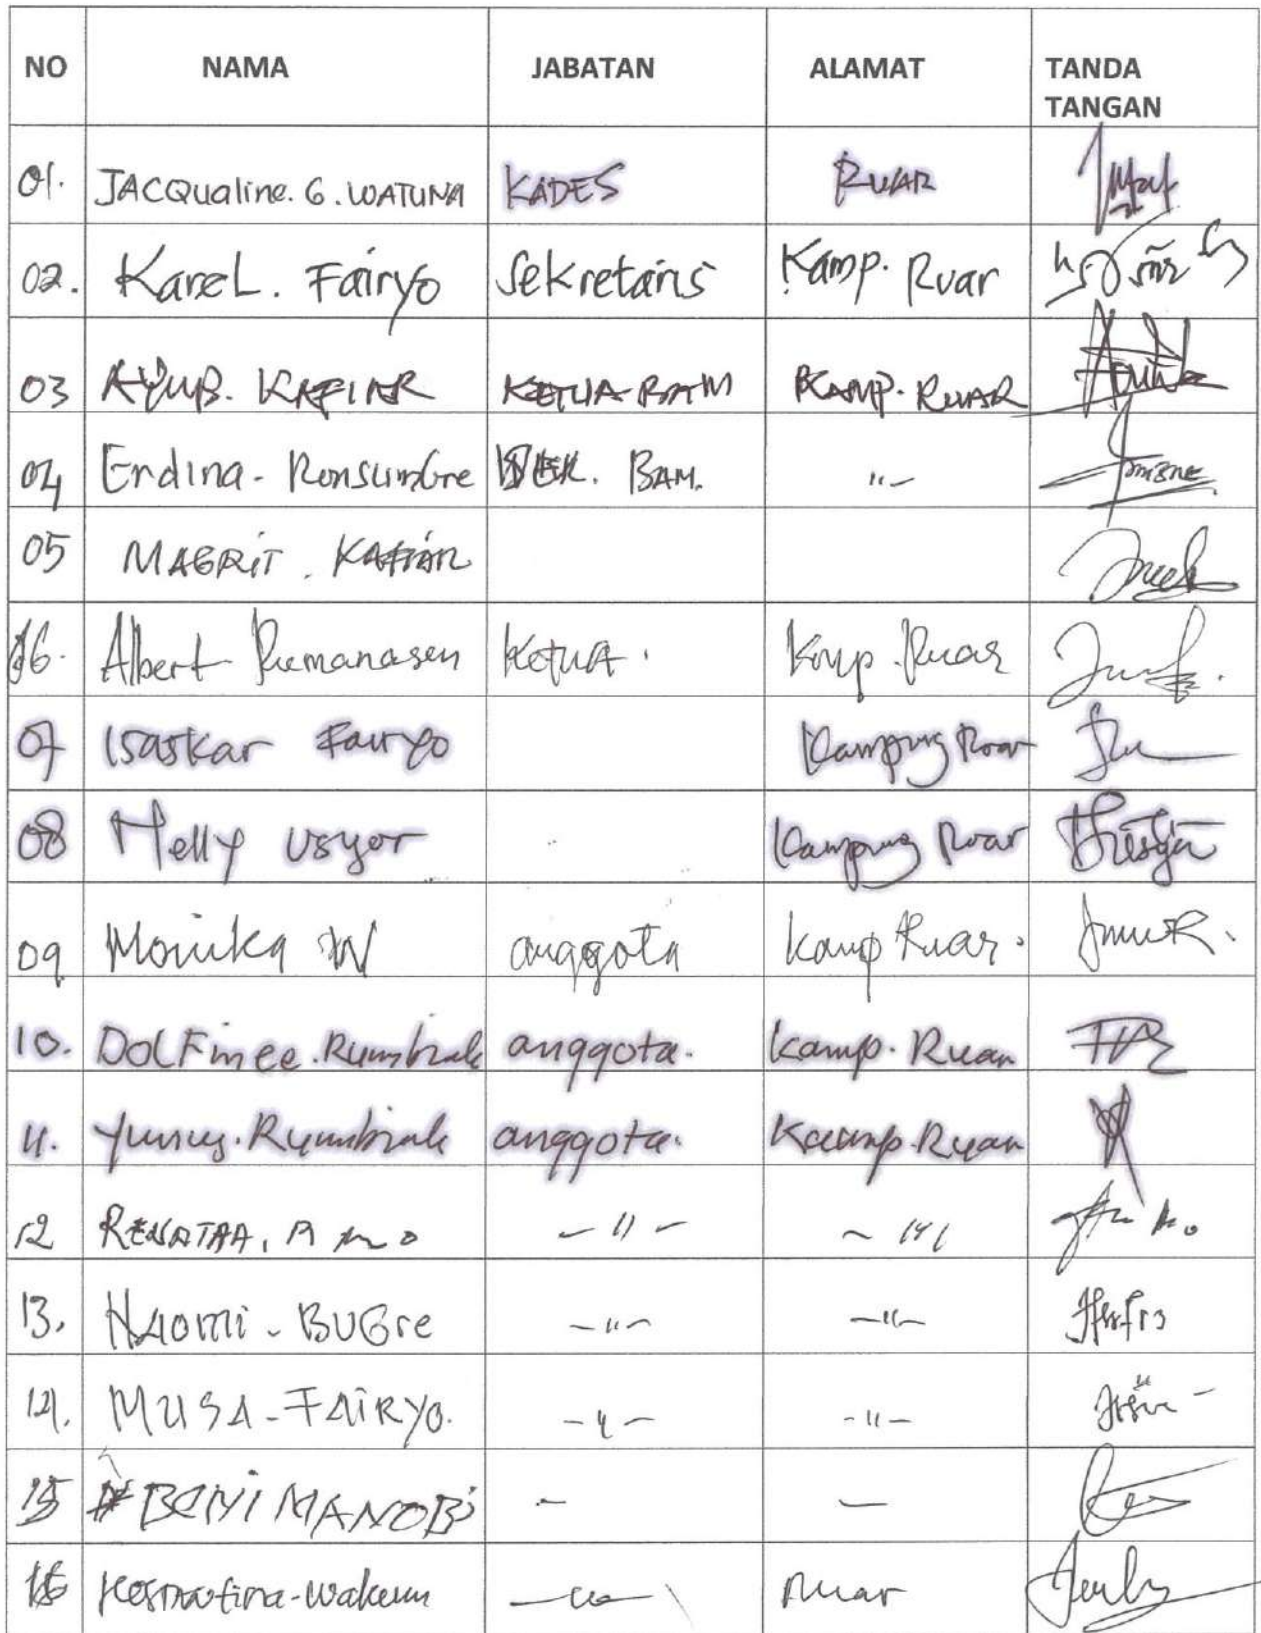 NO NAMA JABATAN ALAMAT TANDA TANGAN
01. JACQualine. G. WATUNA KADES RUAR
02. KareL. Fairyo Sekretaris Kamp. Ruar
03 AYUB. KAFIAR KETUA-BAM KAMP. RUAR
04 Erdina - Ronsumbre SEK. BAM. "-
05 MAGRIT. KAFIAR
06. Albert Rumanasen Ketua. Kamp. Ruar
07 Isaskar Fairyo Kampung Roar
08 Melly Usyor Kampung Roar
09 Monika W anggota Kamp Ruar.
10. DOLFince. Rumbiak anggota. Kamp. Ruar
11. Yunus. Rumbiak anggota. Kamp. Ruar
12 - " -
13. Naomi - BUGre - " - - " -
14. MUSA - FAIRYO. - " - - " -
15 BENI MANOBI - -
16 - " - Ruar